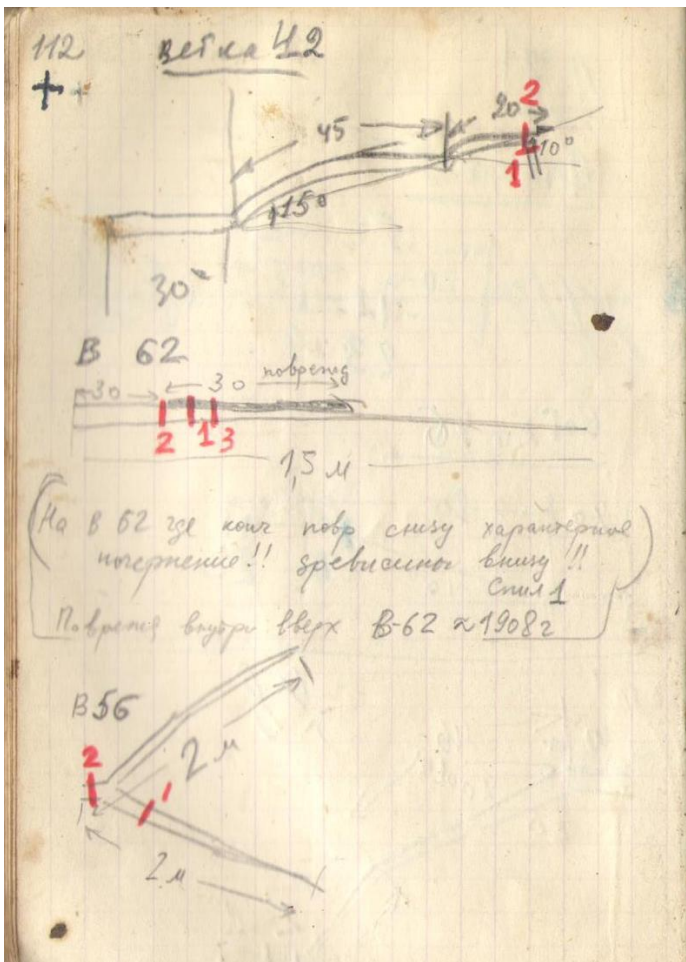 112 ветка 42
+ +
45
20
2
1
10°
15°
30
В 62
30
30 поврежд
2 1 3
1,5 м
На В 62 где конч повр снизу характерное
почернение!! древесины внизу!!
Спил 1
внутри вверх В-62 ≈ 1908 г
В 56
2
2 м
2 м